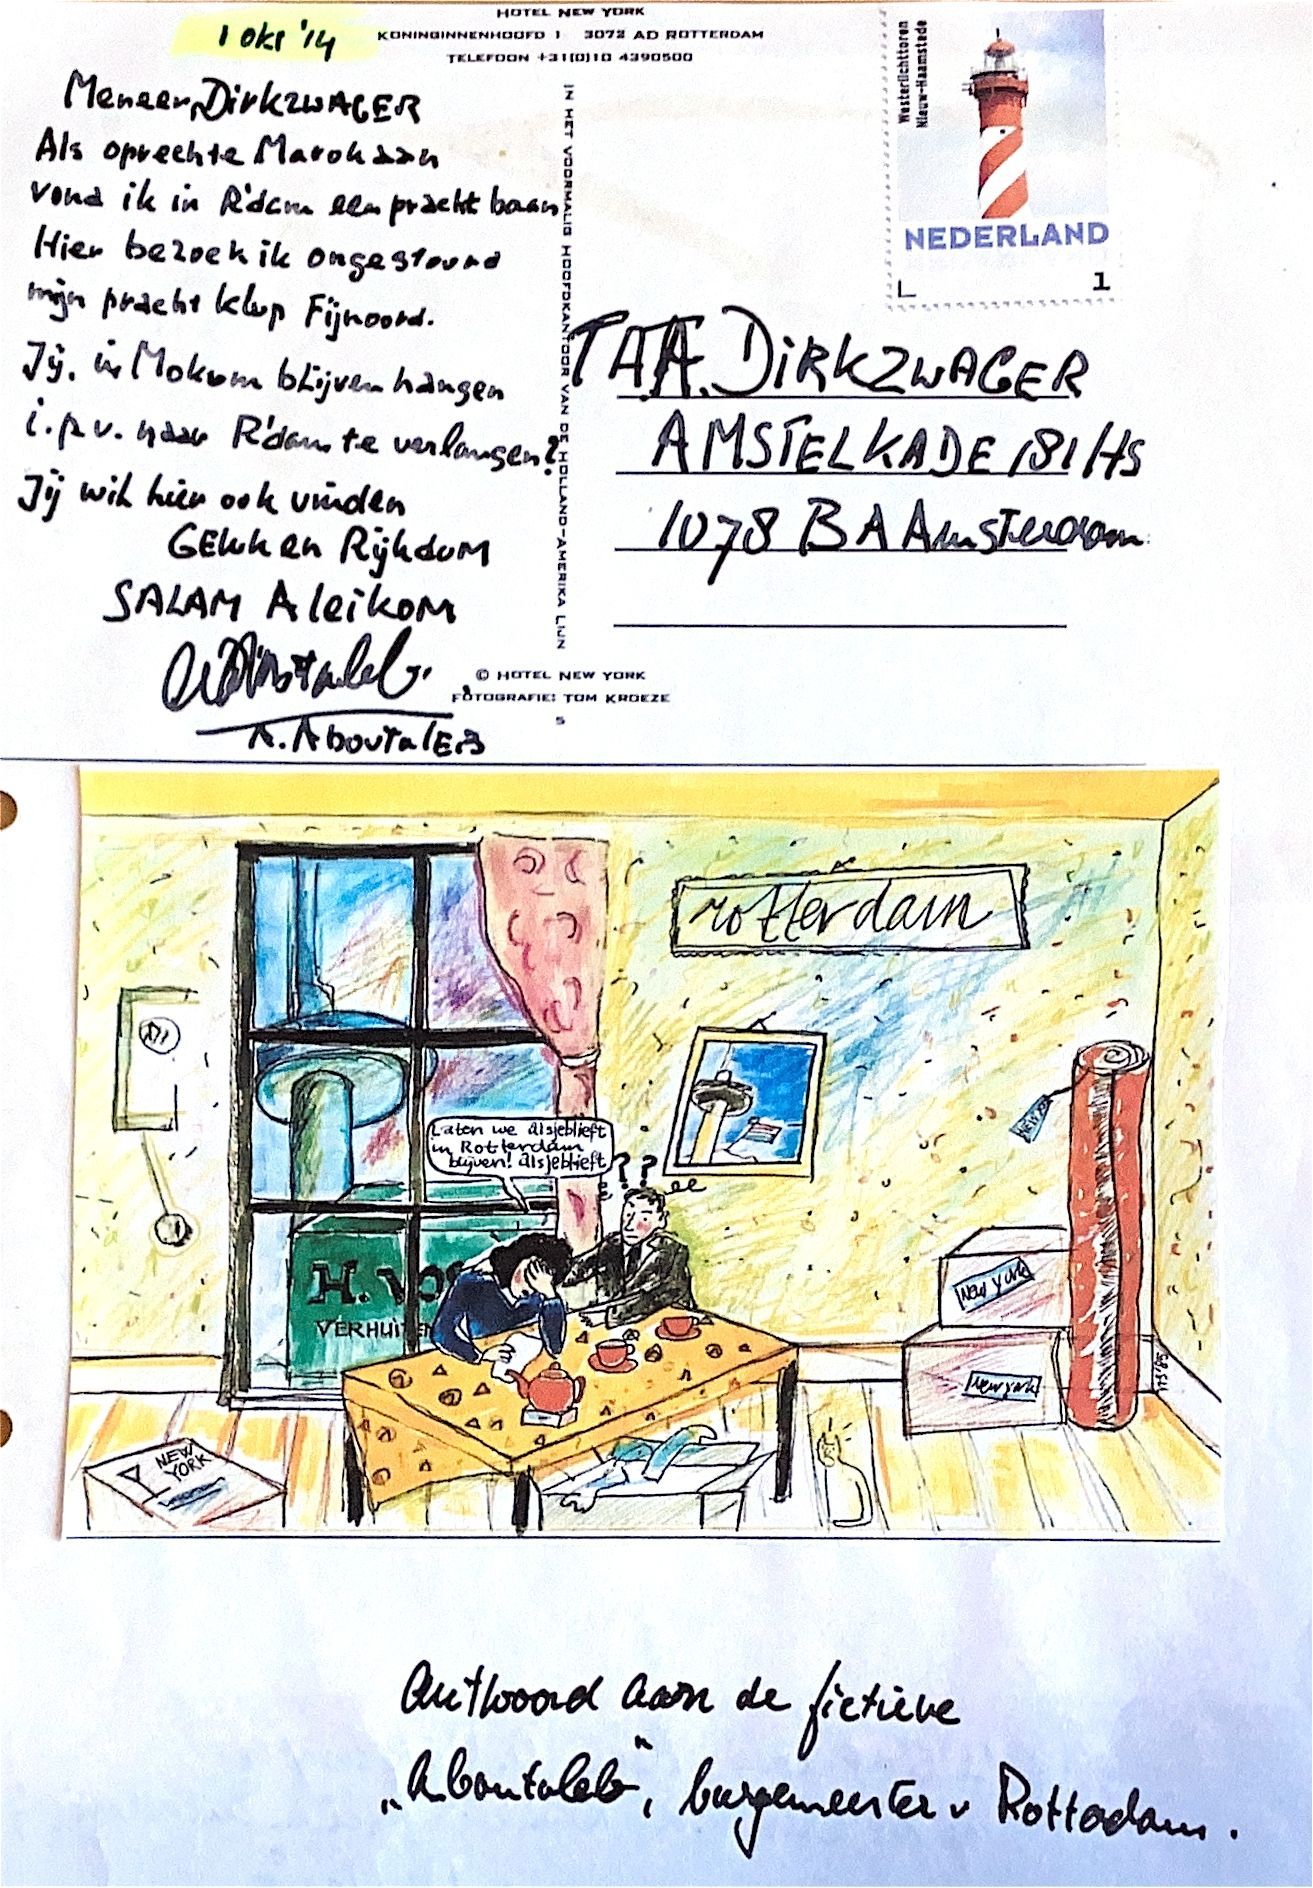 1 Okt '14
HOTEL NEW YORK
KONINGINNENHOOFD 1 3072 AD ROTTERDAM
TELEFOON +31(0)10 4390500
Meneer Dirkzwager
Als oprechte Marokaan
vond ik in R'dam een pracht baan
Hier bezoek ik ongestoord
mijn pracht klup Fijnoord.
Jij, in Mokum blijven hangen
i.p.v. naar R'dam te verlangen?
Jij wilt hier ook vinden
GELUK en Rijkdom
SALAM Aleikom
A. AboutalEB
IN HET VOORMALIG HOOFDKANTOOR VAN DE HOLLAND-AMERIKA LIJN
© HOTEL NEW YORK
FOTOGRAFIE: TOM KROEZE
5
Westerlichttoren
Nieuw-Haamstede
NEDERLAND
1
T.A.A. DIRKZWAGER
AMSTELKADE 181 HS
1078 BA Amsterdam
rotterdam
Laten we alsjeblieft
in Rotterdam
blijven! alsjeblieft
? ?
H. VOS
VERHUIZEN
NEW YORK
New York
New york
NEW
YORK
Antwoord aan de fictieve
„Aboutaleb", burgemeester v Rotterdam.